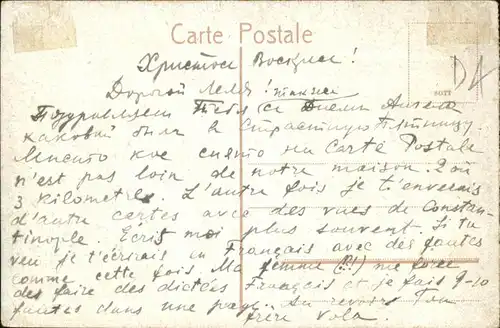 Carte Postale
Христосъ Воскресе!
Дорогой Леля! также
Поздравляем Тебя с Днемъ Ангела
каковой былъ в Страстную Пятницу
Место кое снято на Carte Postale
n'est pas loin de notre maison. 2 où
3 kilometres. L'autre fois je t'enverais
d'autre cartes avec des vues de Constan-
tinople. Ecris moi plus souvent. Si tu
veu je t'écrirais en Français avec des fautes
comme cette fois. Ma femme (?!) me force
des faire des dictées Français et je fais 9-10
fautes dans une page. Au revoir Ton
frère Vola.